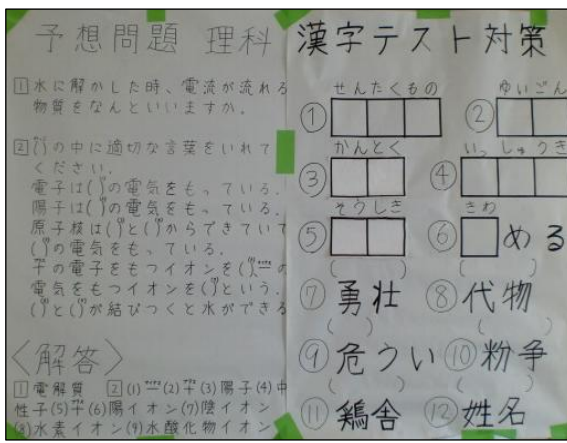 予想問題 理科
1 水に解かした時、電流が流れる
物質をなんといいますか。
2 ()の中に適切な言葉をいれて
ください。
電子は(1)の電気をもっている。
陽子は(2)の電気をもっている。
原子核は(3)と(4)からできていて
(5)の電気をもっている。
プラスの電子をもつイオンを(6)、マイナスの
電気をもつイオンを(7)という。
(8)と(9)が結びつくと水ができる
〈解答〉
1 電解質 2 (1)マイナス(2)プラス(3)陽子(4)中
性子(5)プラス(6)陽イオン(7)陰イオン
(8)水素イオン(9)水酸化物イオン
漢字テスト対策
せんたくもの ゆいごん
① ②
かんとく いっしゅうき
③ ④
そうしき きわ
⑤ ⑥ める
( ) ( )
⑦ 勇壮 ⑧ 代物
( ) ( )
⑨ 危うい ⑩ 粉争
( ) ( )
⑪ 鶏舎 ⑫ 姓名